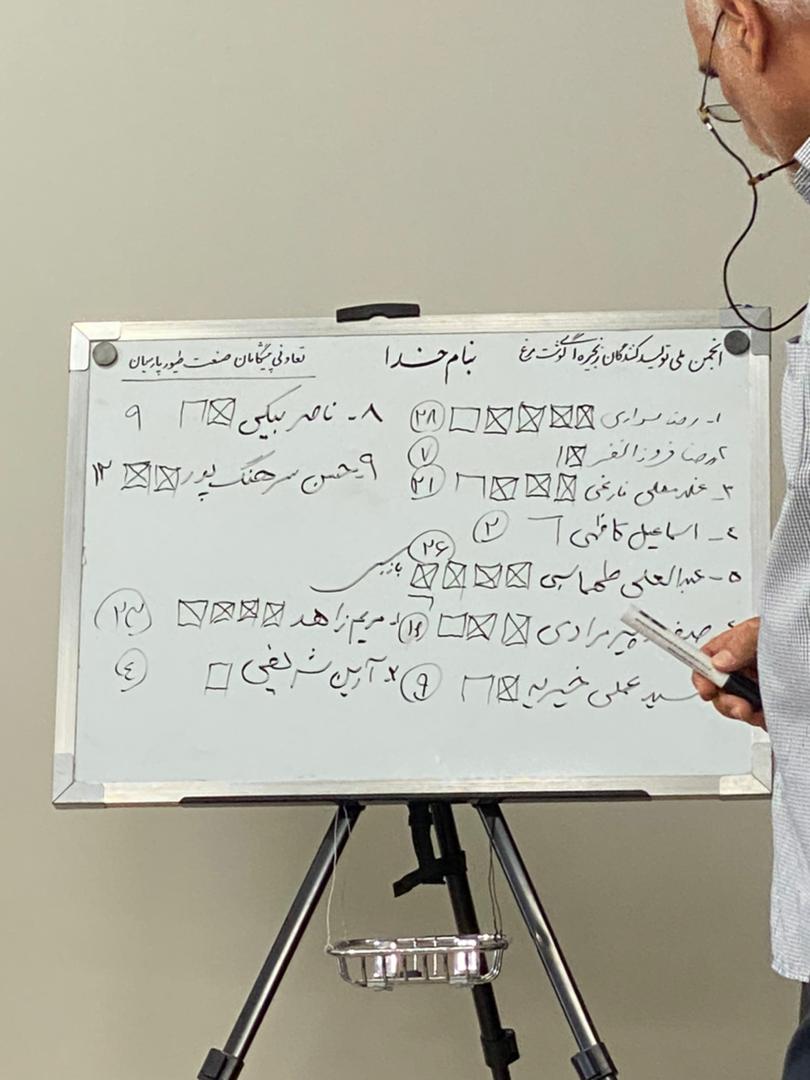 انجمن ملی تولیدکنندگان زنجیره گوشت مرغ
بنام خدا
تعاونی پیشگامان صنعت طیور پارسیان
۱- رضا سواری ۲۸
۲- رضا فروزانفر ۷
۳- غلامعلی فارغی ۲۱
۴- اسماعیل کاظمی ۲
۵- عبدالعلی طهماسبی ۲۶
پیر مرادی ۱۶
سید عملی خیریه ۹
۸- ناصر بیگی ۹
۹- حسن سرهنگ پور ۱۲
بازرس
۱- مریم زاهد ۲۳
۲- آرین شریفی ۴